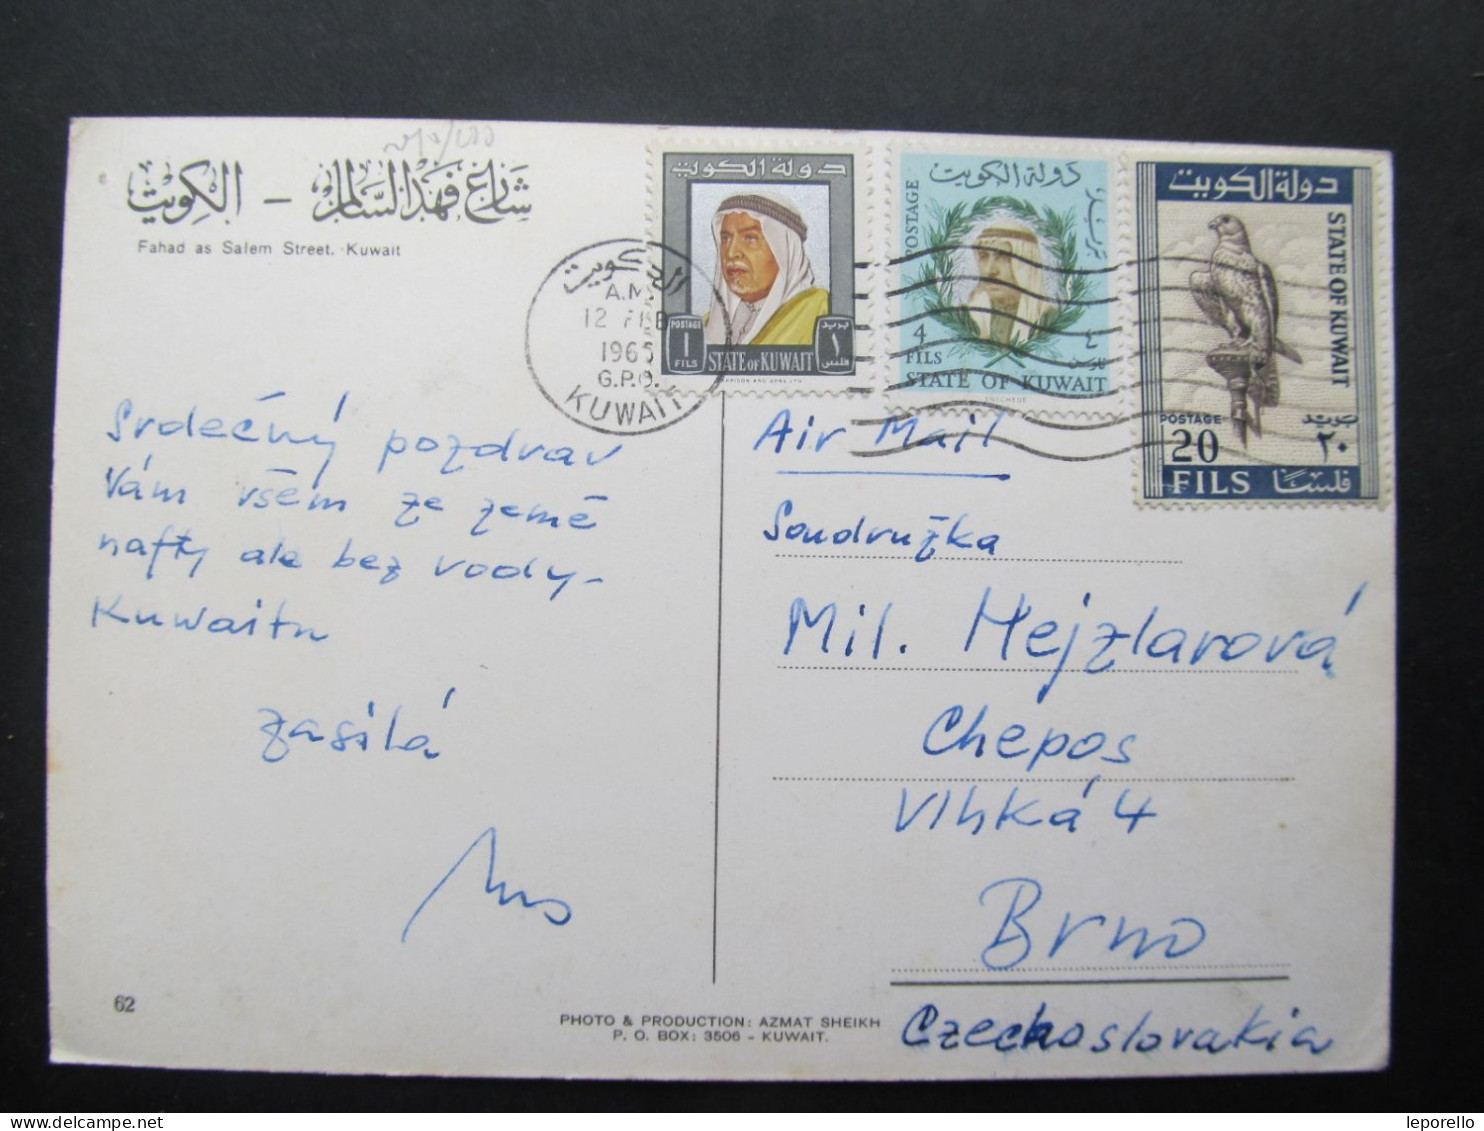 شارع فهد السالم – الكويت
Fahad as Salem Street. Kuwait
دولة الكويت
POSTAGE
1
FILS
STATE OF KUWAIT
بريد
١
فلس
HARRISON AND SONS LTD
دولة الكويت
POSTAGE
بريد
4
FILS
٤
فلوس
STATE OF KUWAIT
ENSCHEDE
دولة الكويت
STATE OF KUWAIT
POSTAGE
20
FILS
بريد
٢٠
فلسا
الكويت
A.M.
12 FEB
1965
G.P.O.
KUWAIT
Srdečný pozdrav
Vám všem ze země
nafty ale bez vody-
Kuwaitu
zasílá
Air Mail
Soudružka
Mil. Hejzlarová
Chepos
Vlhká 4
Brno
Czechoslovakia
62
PHOTO & PRODUCTION: AZMAT SHEIKH
P. O. BOX: 3506 - KUWAIT.
leporello